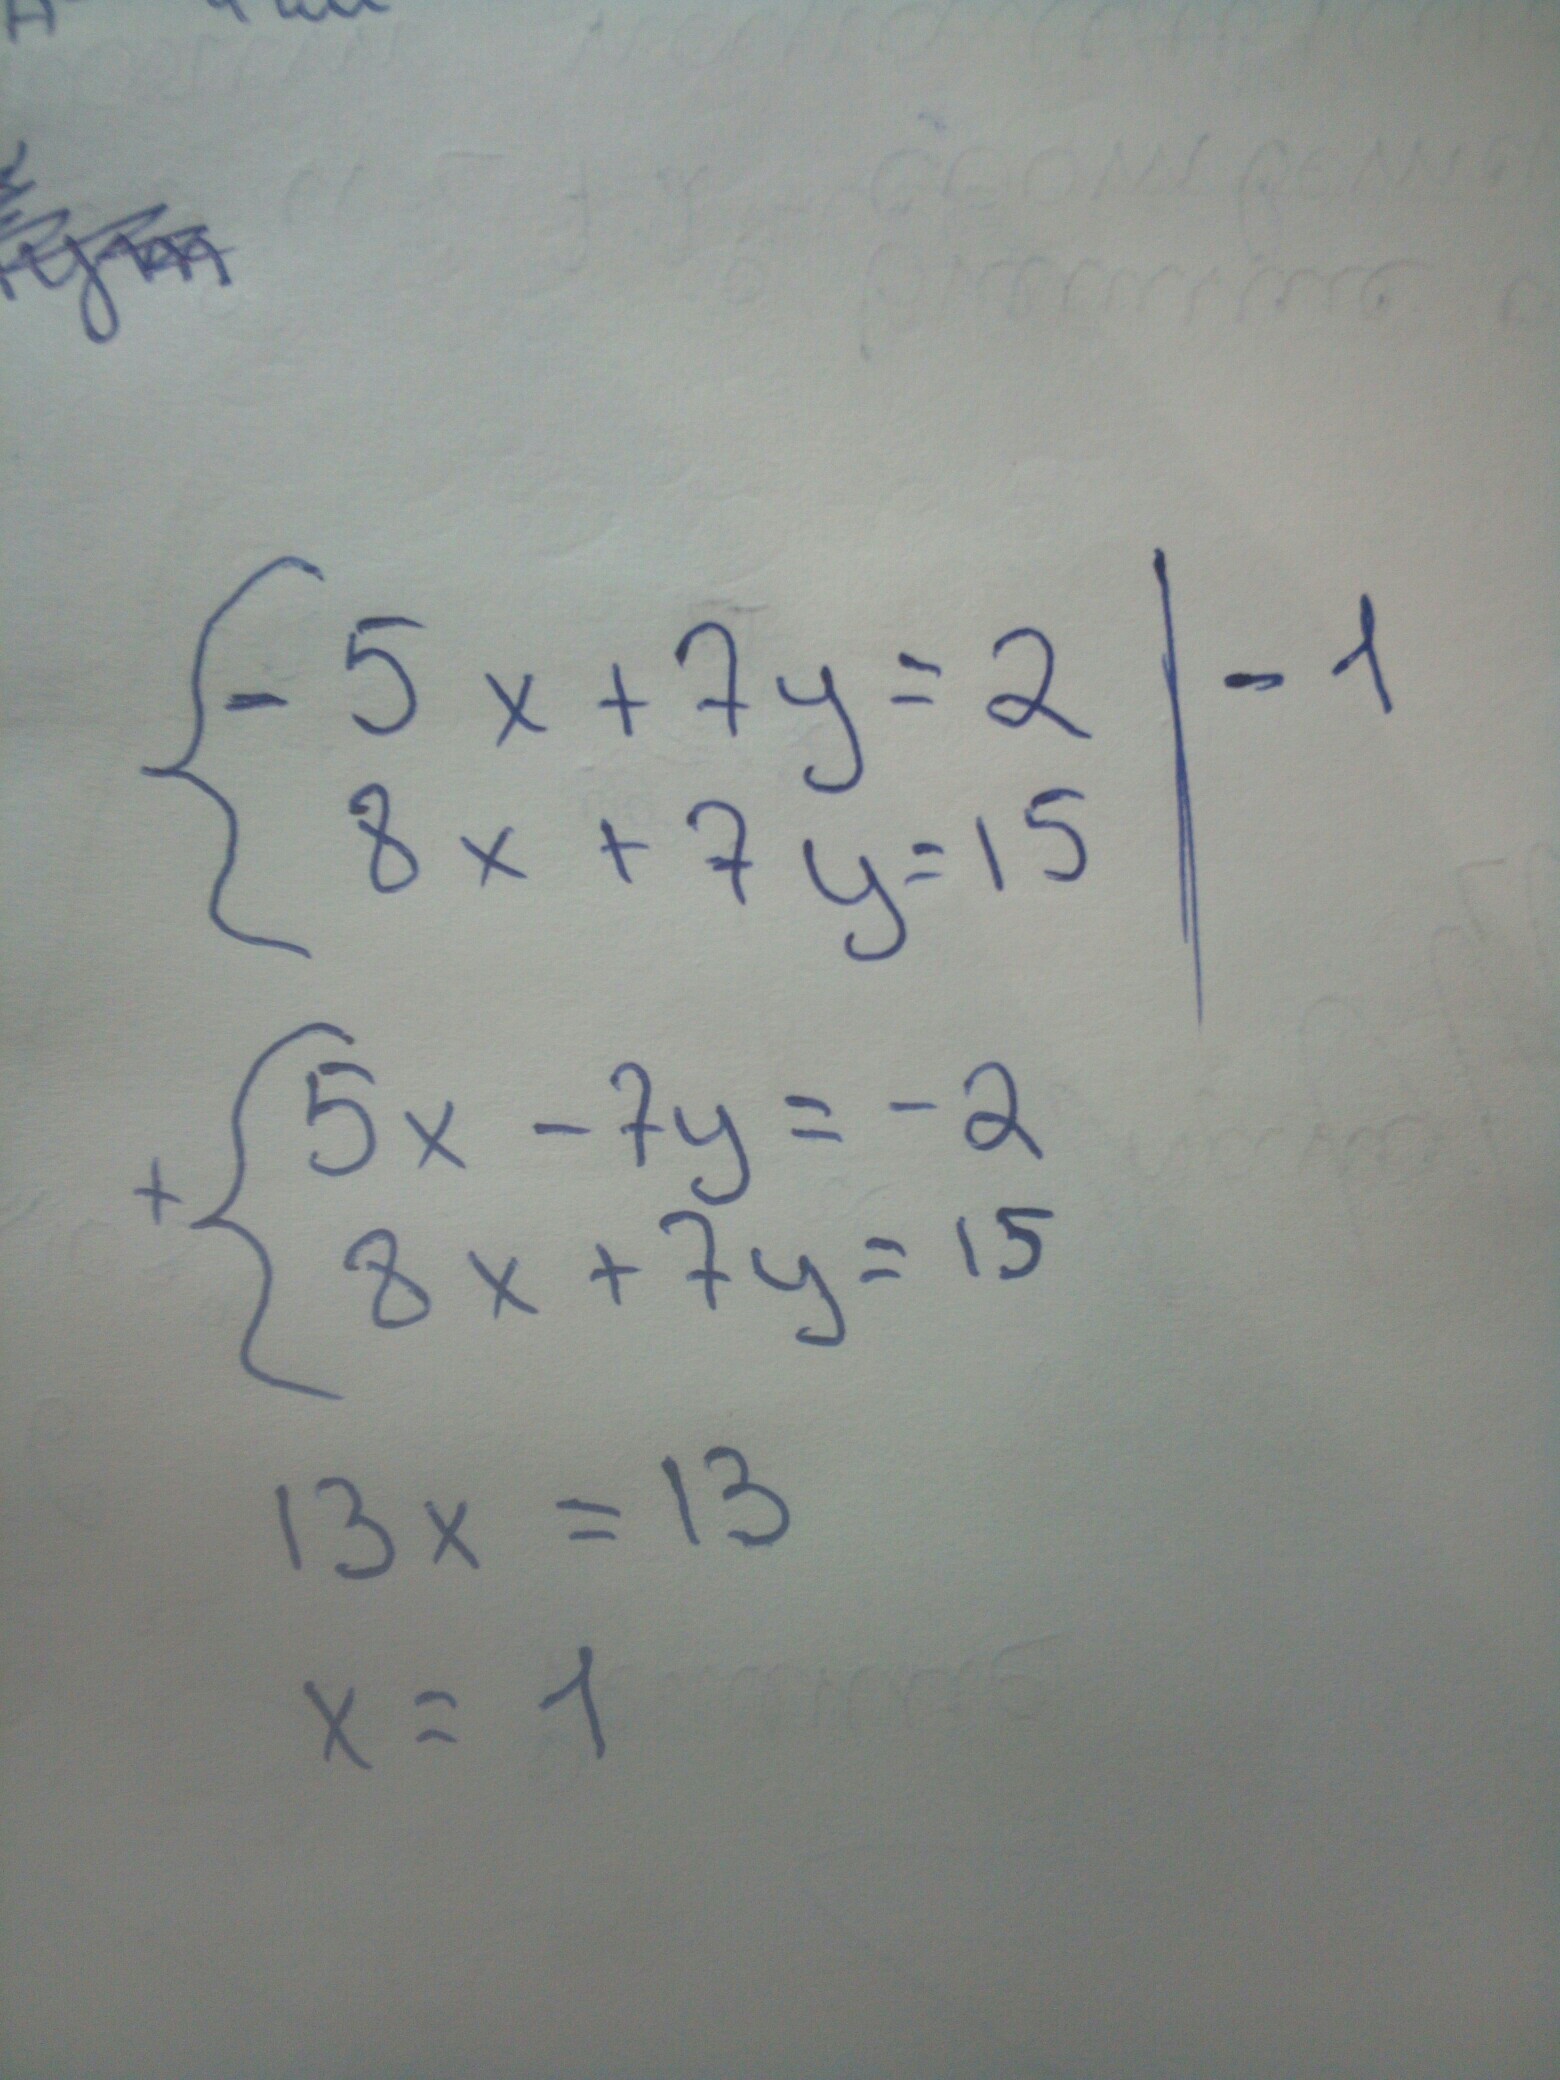 - 5x + 7y = 2 | - 1
8x + 7y = 15
+ 5x - 7y = -2
8x + 7y = 15
13x = 13
x = 1